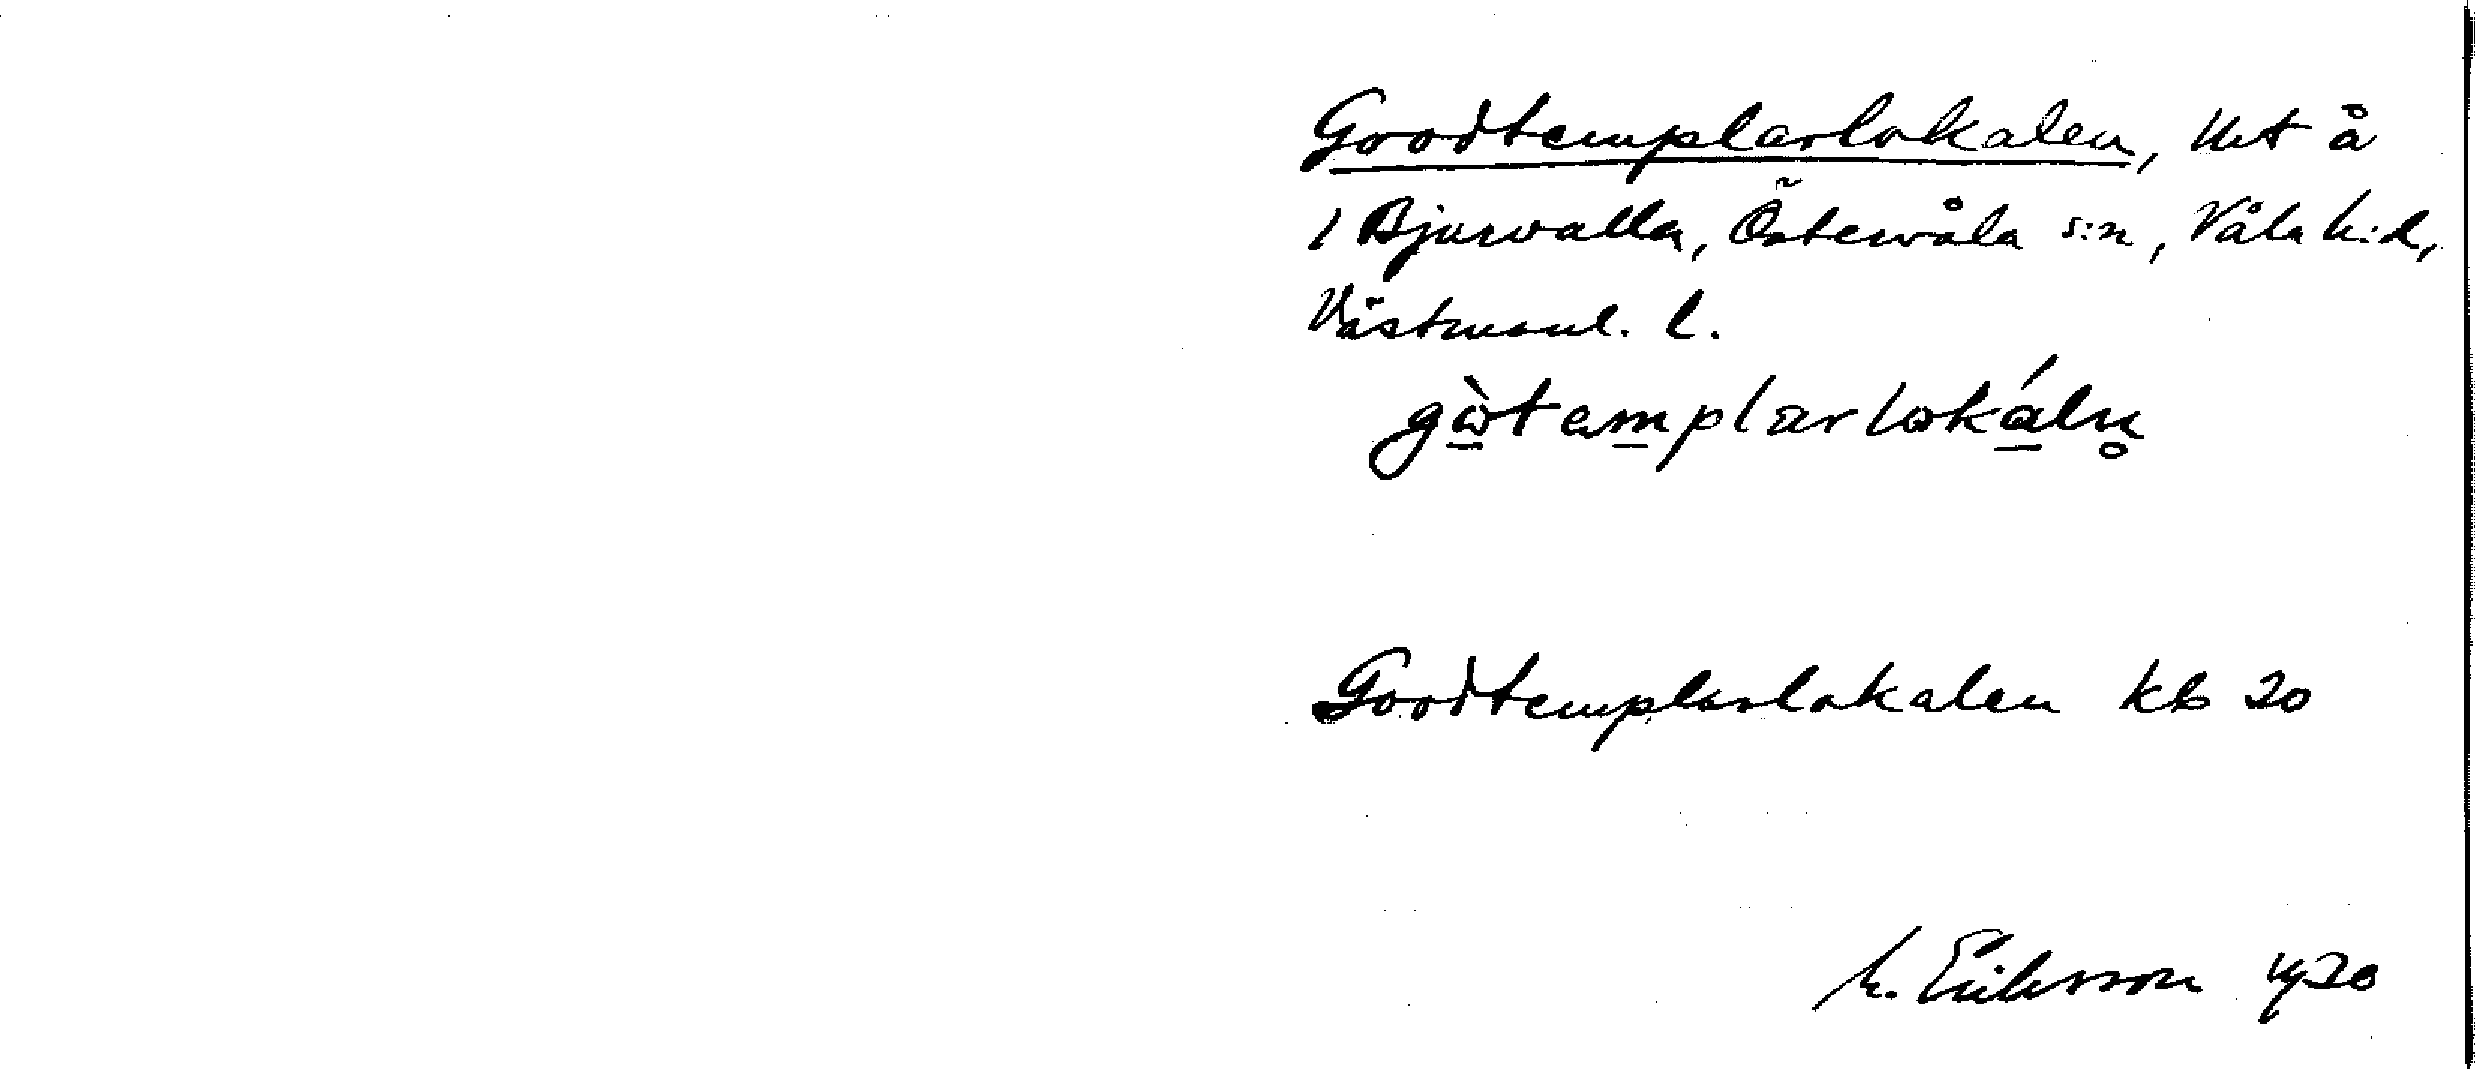 Goodtemplarlokalen, lht å
1 Bjurvalla, Östervåla s:n, Våla h:d,
Västmanl. l.
gòtemplarlokáln̥
Goodtemplarlokalen kb 20
M. Eriksson 1920